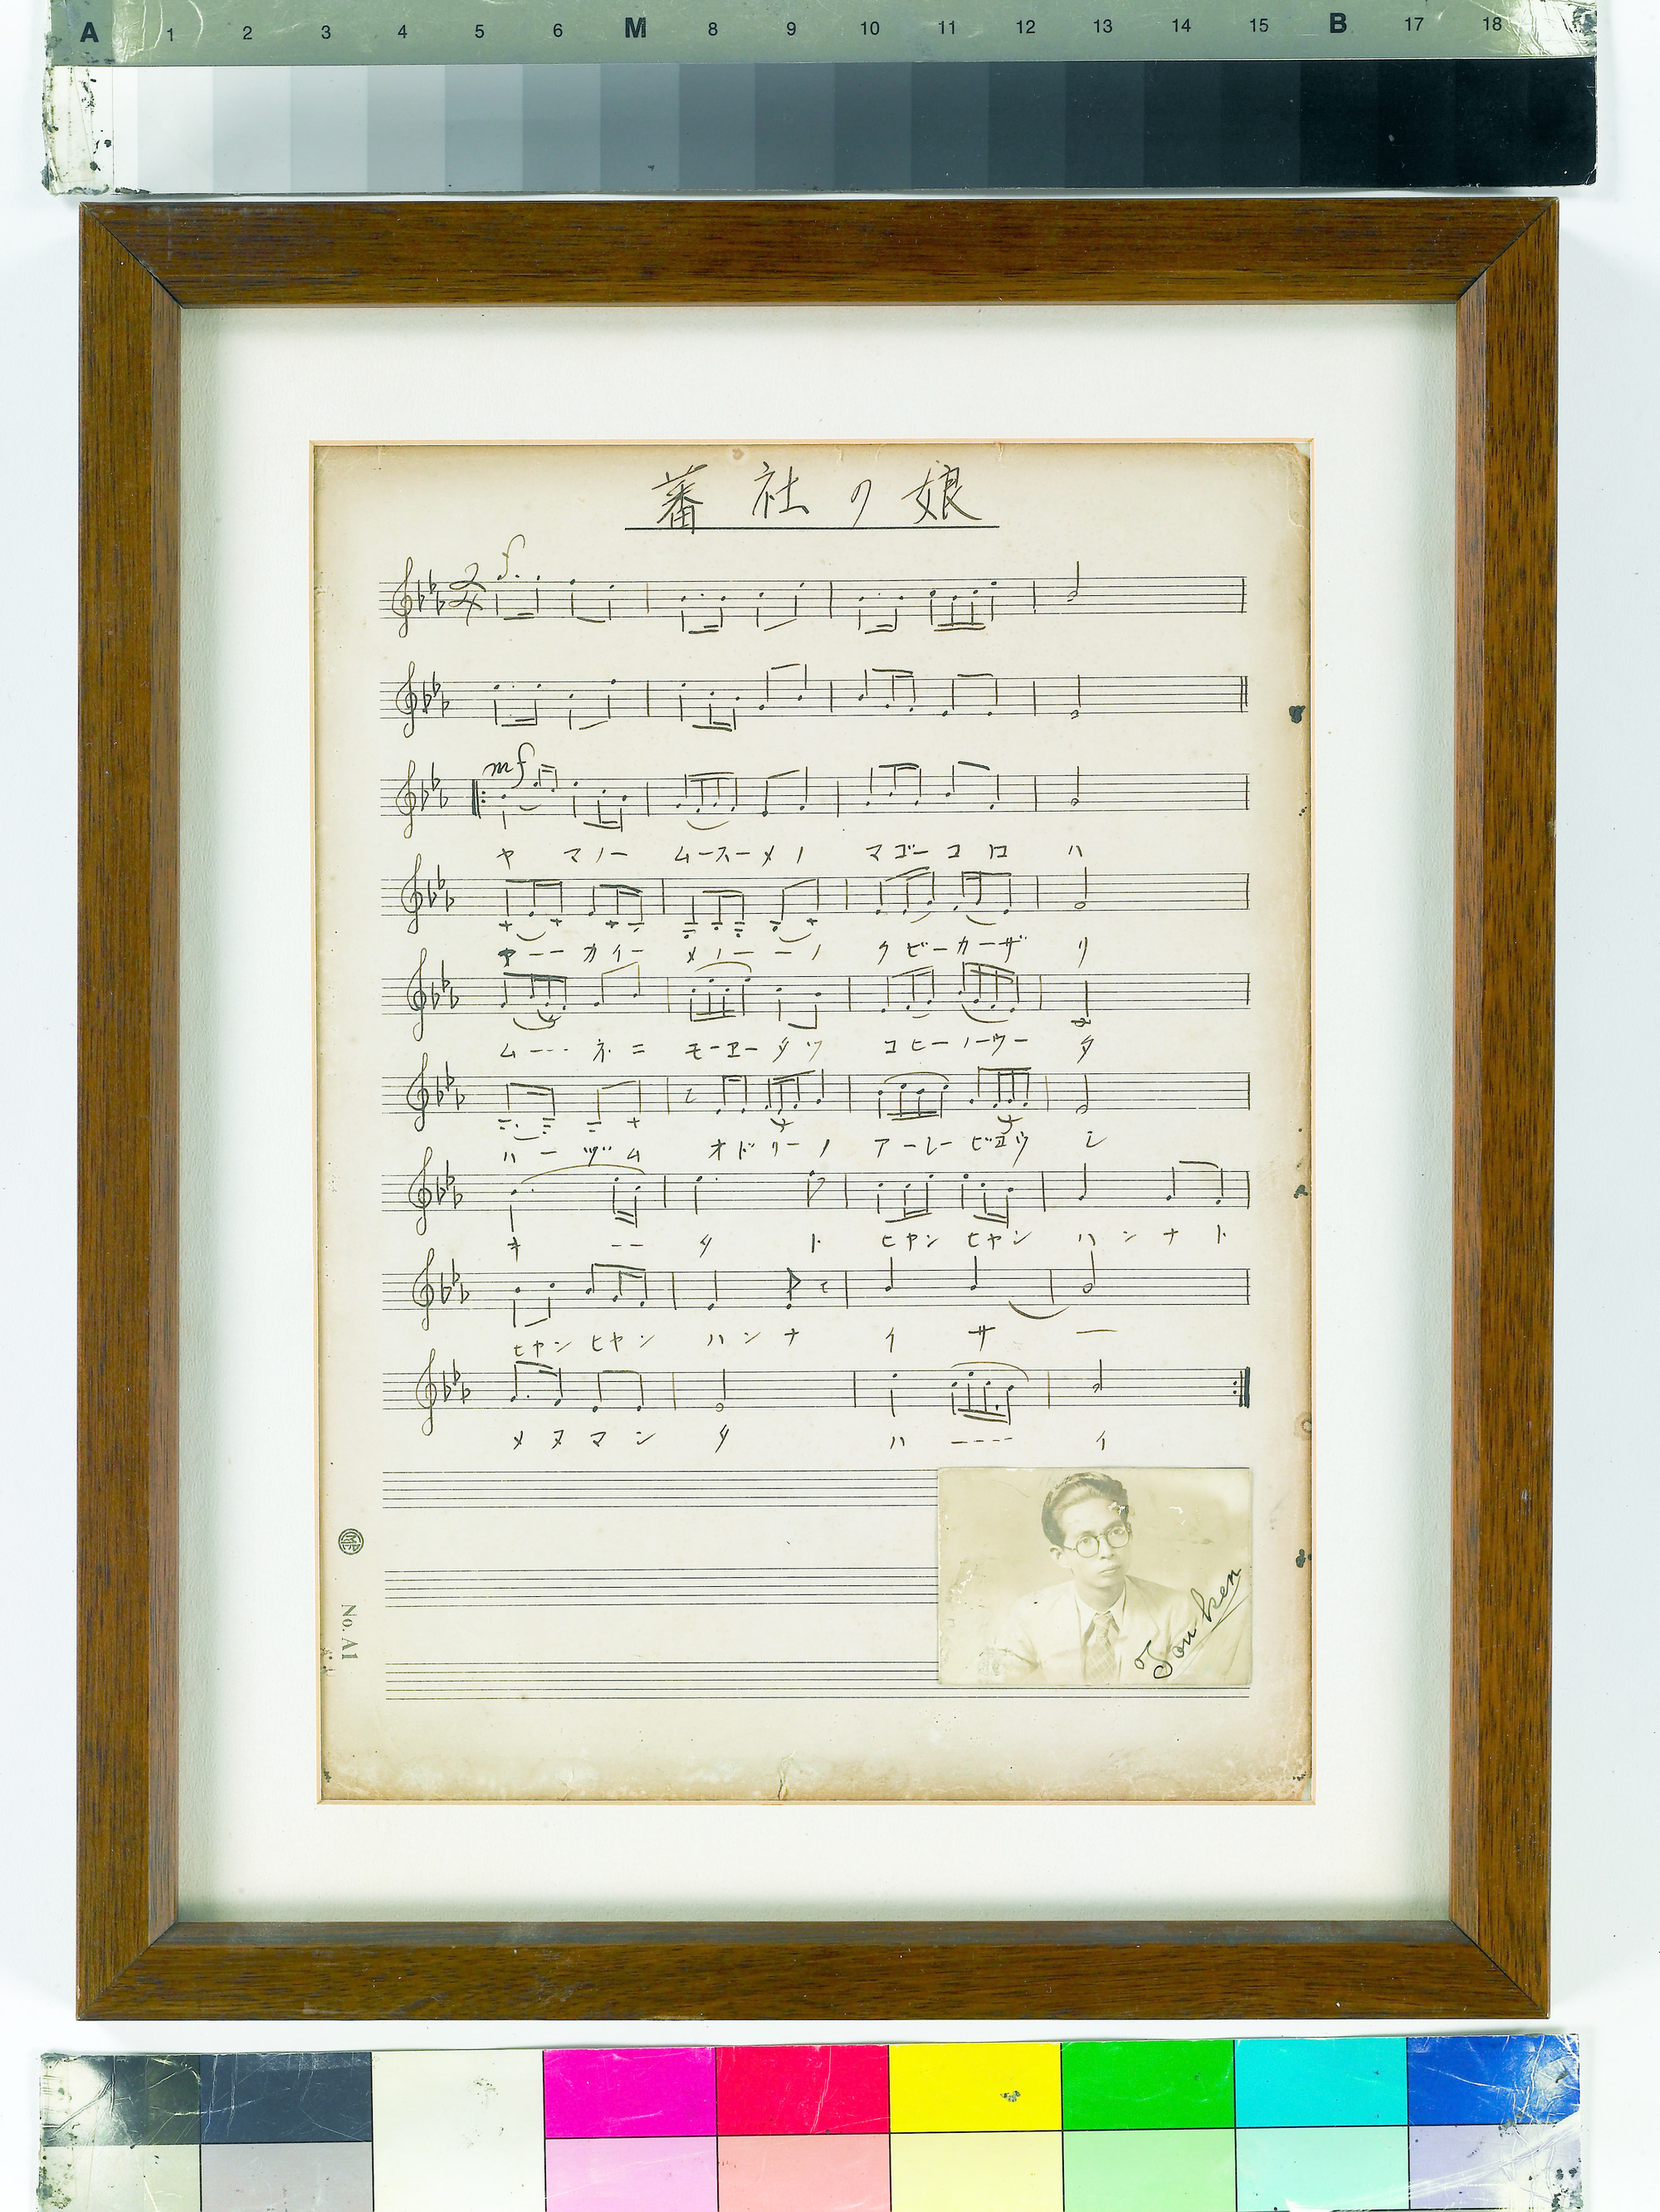 A 1 2 3 4 5 6 M 8 9 10 11 12 13 14 15 B 17 18
蕃社の娘
f
mf
ヤ マノー ムースーメノ マゴーコロ ハ
ヤーー カイー メノーーノ クビーカーザ リ
ムーーー ネニ モーエータツ コヒーノーウー タ
ハーヅム オドリーノ アーしービヨウ シ
キ ーー タ ト ヒヤン ヒヤン ハンナト
ヒヤン ヒヤン ハンナ イ サ ー
メヌマン タ ハーーーー イ
No. A1